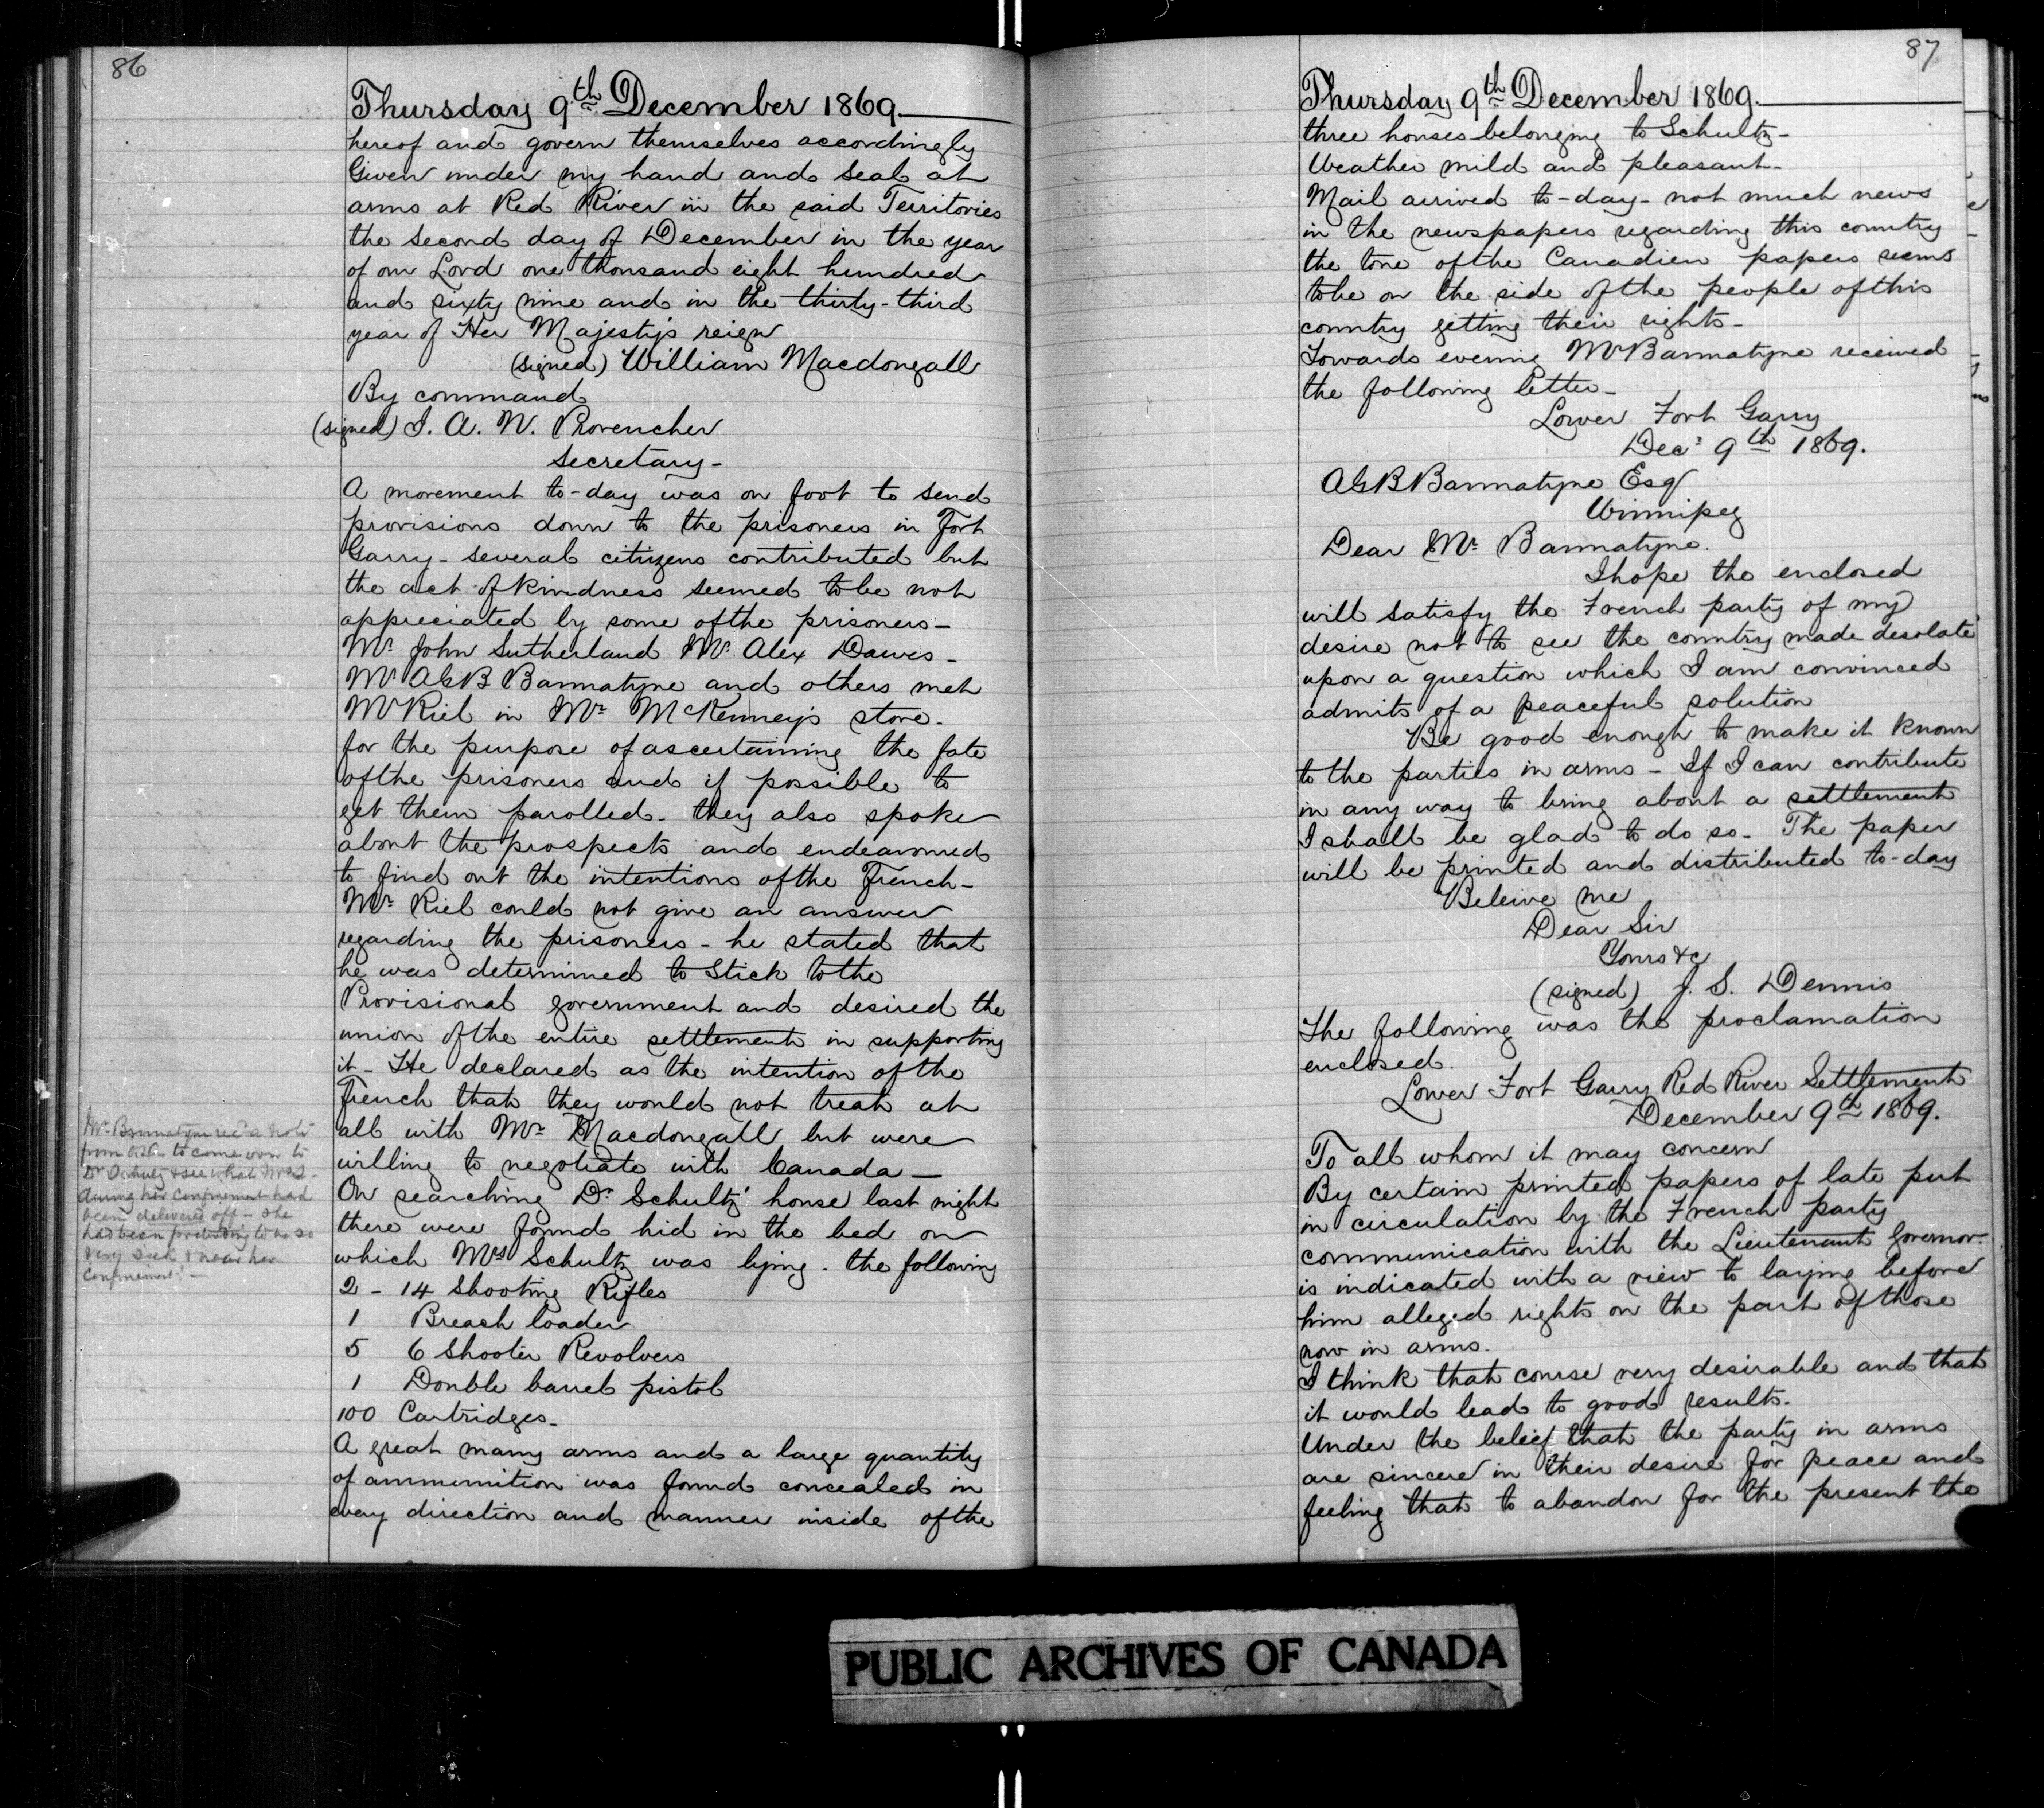 86
Thursday 9th December 1869.
hereof and govern themselves accordingly
Given under my hand and seal at
arms at Red River in the said Territories
the second day of December in the year
of our Lord one thousand eight hundred
and sixty nine and in the thirty-third
year of Her Majesty's reign
(signed) William Macdougall
By command
(signed) J. A. N. Provencher
Secretary-
A movement to-day was on foot to send
provisions down to the prisoners in Fort
Garry - several citizens contributed but
the act of kindness seemed to be not
appreciated by some of the prisoners -
Mr John Sutherland Mr Alex Dawes -
Mr AGB Bannatyne and others met
Mr Riel in Mr McKenney's store -
for the purpose of ascertaining the fate
of the prisoners and if possible to
get them parolled - they also spoke
about the prospects and endeavoured
to find out the intentions of the French -
Mr Riel could not give an answer
regarding the prisoners - he stated that
he was determined to stick to the
Provisional government and desired the
union of the entire settlement in supporting
it - He declared as the intention of the
French that they would not treat at
all with Mr Macdougall but were
willing to negotiate with Canada -
On searching Dr Schultz' house last night
there were found hid in the bed on
which Mrs Schultz was lying. the following
2 - 14 Shooting Rifles
1 Breach loader
5 6 Shooter Revolvers
1 Double barrel pistol
100 Cartridges -
A great many arms and a large quantity
of ammunition was found concealed in
every direction and manner inside of the
Mr Bannatyne rec'd a note
from to come over to
Dr Schultz & see what Mrs S-
during her confinement had
been delivered off - she
had been pretending to be so
very sick & near her
confinement -
87
Thursday 9th December 1869.
three houses belonging to Schultz -
Weather mild and pleasant -
Mail arrived to-day - not much news
in the newspapers regarding this country
the tone of the Canadien papers seems
to be on the side of the people of this
country getting their rights -
Towards evening Mr Bannatyne received
the following letter -
Lower Fort Garry
Decr 9th 1869.
AGB Bannatyne Esq
Winnipeg
Dear Mr Bannatyne.
I hope the enclosed
will satisfy the French party of my
desire not to see the country made desolate
upon a question which I am convinced
admits of a peaceful solution
Be good enough to make it known
to the parties in arms - If I can contribute
in any way to bring about a settlement
I shall be glad to do so - The paper
will be printed and distributed to-day
Beleive me
Dear Sir
Yours &c
(signed) J. S. Dennis
The following was the proclamation
enclosed.
Lower Fort Garry Red River Settlement
December 9th 1869.
To all whom it may concern
By certain printed papers of late put
in circulation by the French party
communication with the Lieutenant Governor
is indicated with a view to laying before
him alleged rights on the part of those
now in arms.
I think that course very desirable and that
it would lead to good results.
Under the belief that the party in arms
are sincere in their desire for peace and
feeling that to abandon for the present the
PUBLIC ARCHIVES OF CANADA